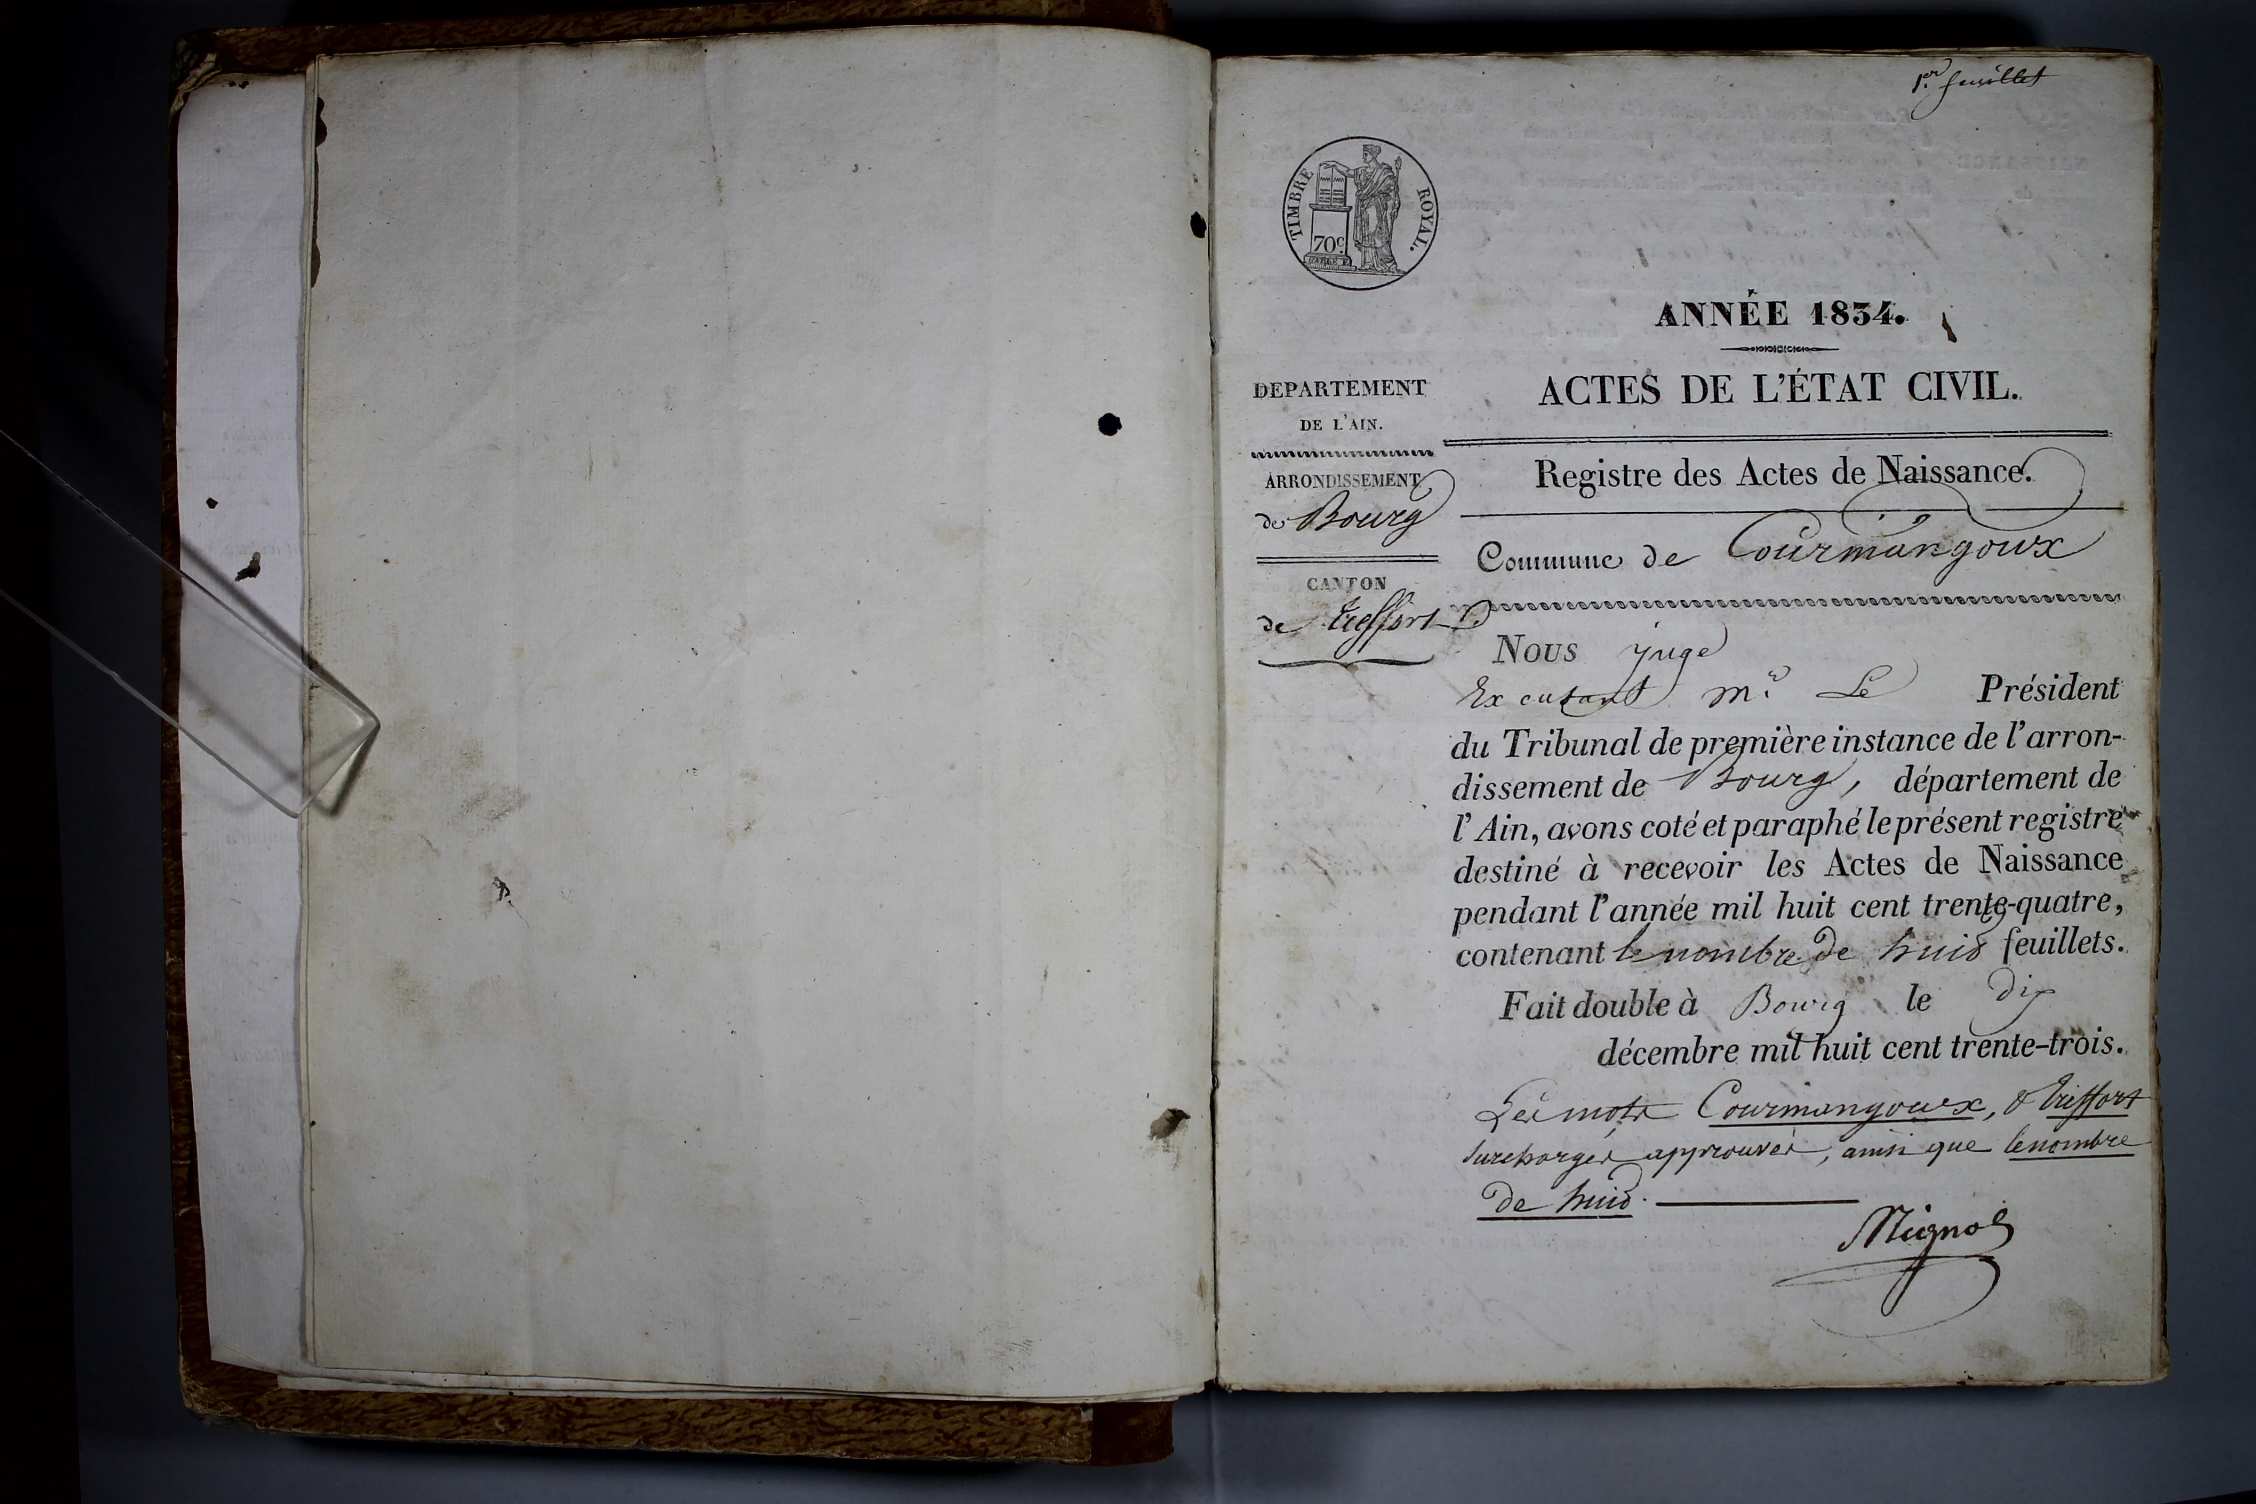 1.er feuillet
TIMBRE ROYAL.
70c
ANNÉE 1834.
DEPARTEMENT
DE L'AIN.
ARRONDISSEMENT
de Bourg
CANTON
de treffort
ACTES DE L'ÉTAT CIVIL.
Registre des Actes de Naissance.
Commune de Courmangoux
Nous juge
Ex cutant Mr. Le Président
du Tribunal de première instance de l'arron-
dissement de Bourg, département de
l'Ain, avons coté et paraphé le présent registre
destiné à recevoir les Actes de Naissance
pendant l'année mil huit cent trente-quatre,
contenant le nombre de huit feuillets.
Fait double à Bourg le dix
décembre mil huit cent trente-trois.
Les mots Courmangoux, & treffort
surchargés approuvés, ainsi que le nombre
de huit.
Mignot